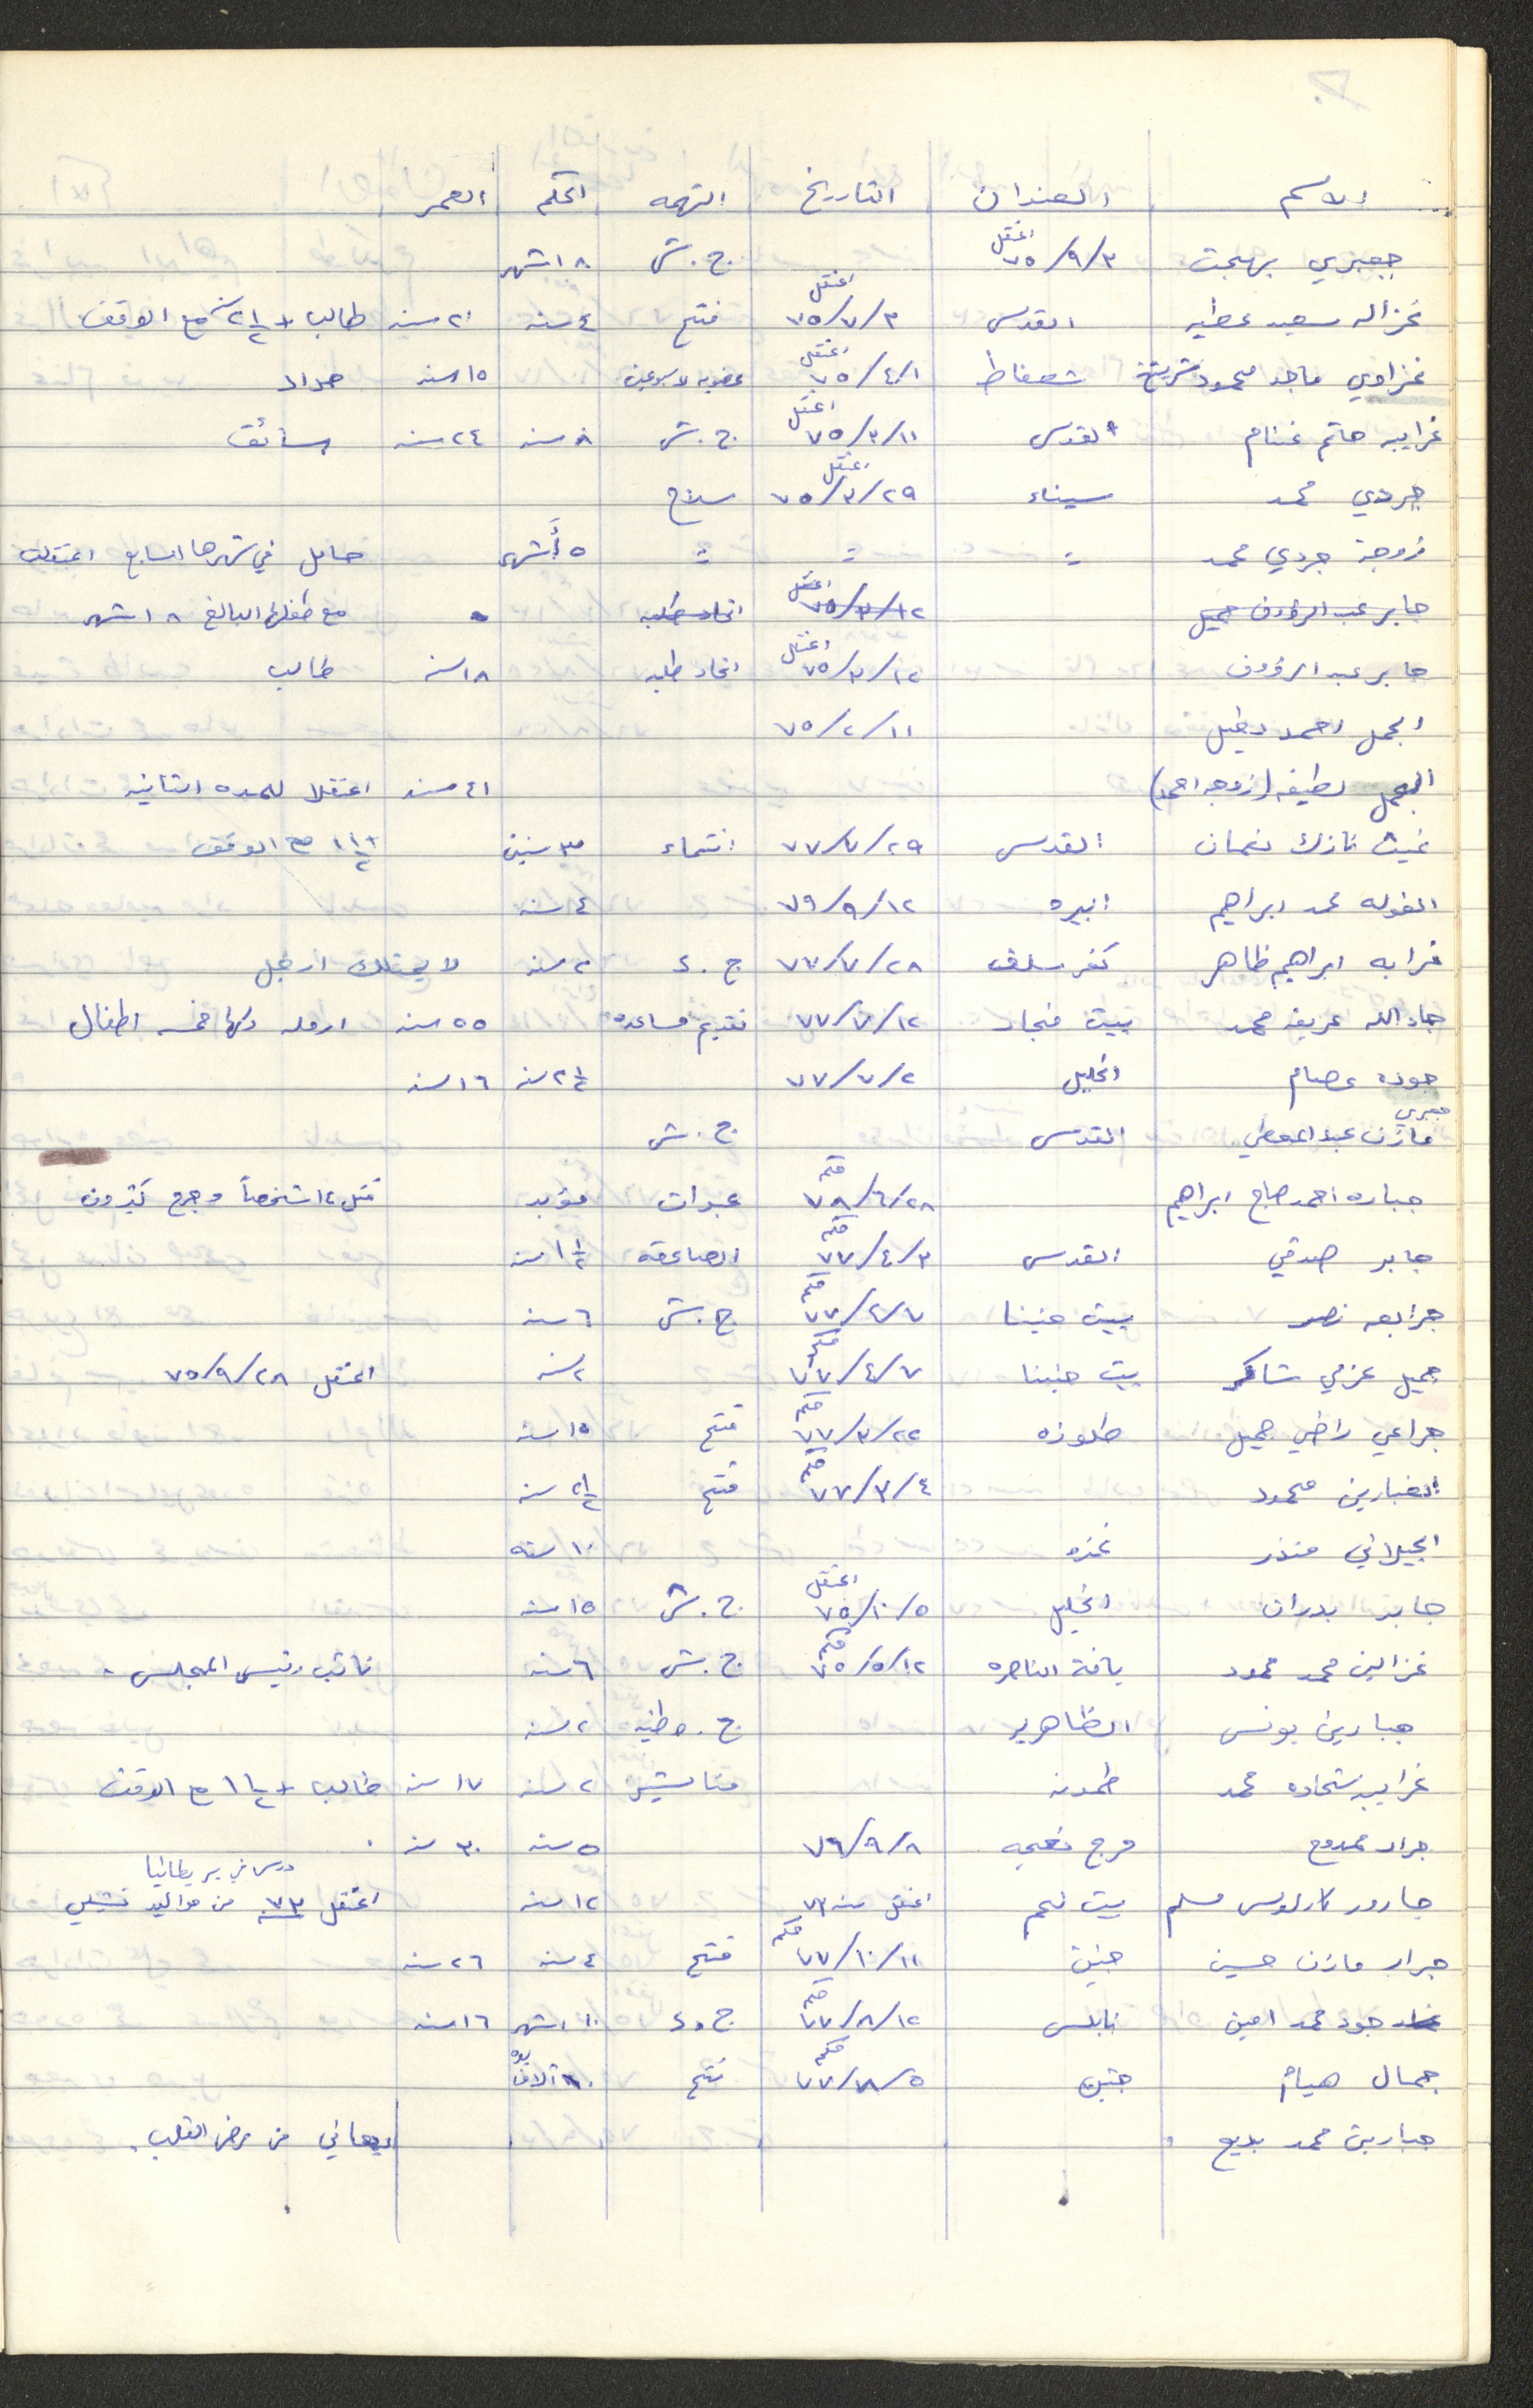 الاسم العنوان التاريخ التهمه الحكم العمر
جعبري بهجت اعتقل ٧٥/٩/٣ ج.ش ١٨ شهر
غزاله سعيد عطيه القدس اعتقل ٧٥/٧/٣ فتح ٤ سنه ٢٠ سنه طالب + ٢١/٢ س مع الوقف
غزاوي ماجد محمود شعفاط اعتقل ٧٥/٤/١ ١٥ سنه حداد
غرايبه حاتم غنام القدس اعتقل ٧٥/٣/١١ ج.ش ٨ سنه ٢٤ سنه سائق
جردي محمد سيناء اعتقل ٧٥/٣/٢٩ سلاح
زوجة جردي محمد = = = ٥ أشهر حامل في شهرها السابع اعتقلت
جابر عبد الرؤوف جميل اعتقل ٧٥/٣/١٢ اتحاد طلبه مع طفلها البالغ ١٨ شهر
جابر عبد الرؤوف اعتقل ٧٥/٣/١٢ اتحاد طلبه ١٨ سنه طالب
الجمل احمد دخيل ٧٥/٢/١١
الجمل لطيفه (زوجه احمد) ٤١ سنه اعتقلا للمره الثانيه
غيث نازك نعمان القدس ٧٧/٧/٢٩ انتماء ٣ سنين + ١١/٢ مع الوقف
الغوله محمد ابراهيم البيره ٧٩/٩/١٢ ٤ سنه
غرابه ابراهيم ظاهر كفر سلف ٧٧/٧/٢٨ ج.د ٢ سنه لا يمتلك ارجل
جاد الله عريفه محمد بيت فجار ٧٧/٧/١٢ تقديم مساعده ٥٥ سنه ارمله ولها خمسه اطفال
جوده عصام الخليل ٧٧/٧/٢ ٢١/٢ سنه ١٦ سنه
جعبري مازن عبد المعطي القدس ج.ش
جباره احمد حاج ابراهيم حكم ٧٨/٦/٢٨ عبوات مؤبد قتل ١٤ شخصاً وجرح كثيرون
جابر صدقي القدس حكم ٧٧/٤/٣ الصاعقه ١١/٢ سنه
جرابعه نصر بيت حنينا حكم ٧٧/٢/٧ ج.ش ٦ سنه
جميل عزمي شاكر بيت حنينا حكم ٧٧/٤/٧ ٢ سنه اعتقل ٧٥/٩/٢٨
جراعي راضي جميل طلوزه حكم ٧٧/٣/٢٢ فتح ١٥ سنه
الغبارين محمود حكم ٧٧/٣/٤ فتح ٢١/٢ سنه
الجيلاني منذر غزه ١٠ سنه
جابر بدران الخليل اعتقل ٧٥/١٠/٥ ج.ش ١٥ سنه
غزالين محمد محمود يافة الناصره حكم ٧٥/٥/١٢ ج.ش ٦ سنه نائب رئيس المجلس .
جبارين يونس الظاهريه ج. وطنيه ٢ سنه
غرايبه شحاده محمد طمونه مناشير ٢ سنه ١٧ سنه طالب + ١١/٢ مع الوقف
جرار ممدوح مرج نعجه ٧٦/٩/٨ ٥ سنه ٣٠ سنه
درس في بريطانيا
جارور كارلوس مسلم بيت لحم اعتقل سنه ٧٣ ١٢ سنه اعتقل ٧٣ من مواليد تشيلي
جرار مازن حسين جنين حكم ٧٧/١٠/١١ فتح ٤ سنه ٢٦ سنه
جود محمد امين نابلس حكم ٧٧/٨/١٢ ج.د ١٠ اشهر ١٦ سنه
جمال هيام جنين حكم ٧٧/٨/٥ فتح
جبارين محمد بديع . يعاني من مرض القلب .